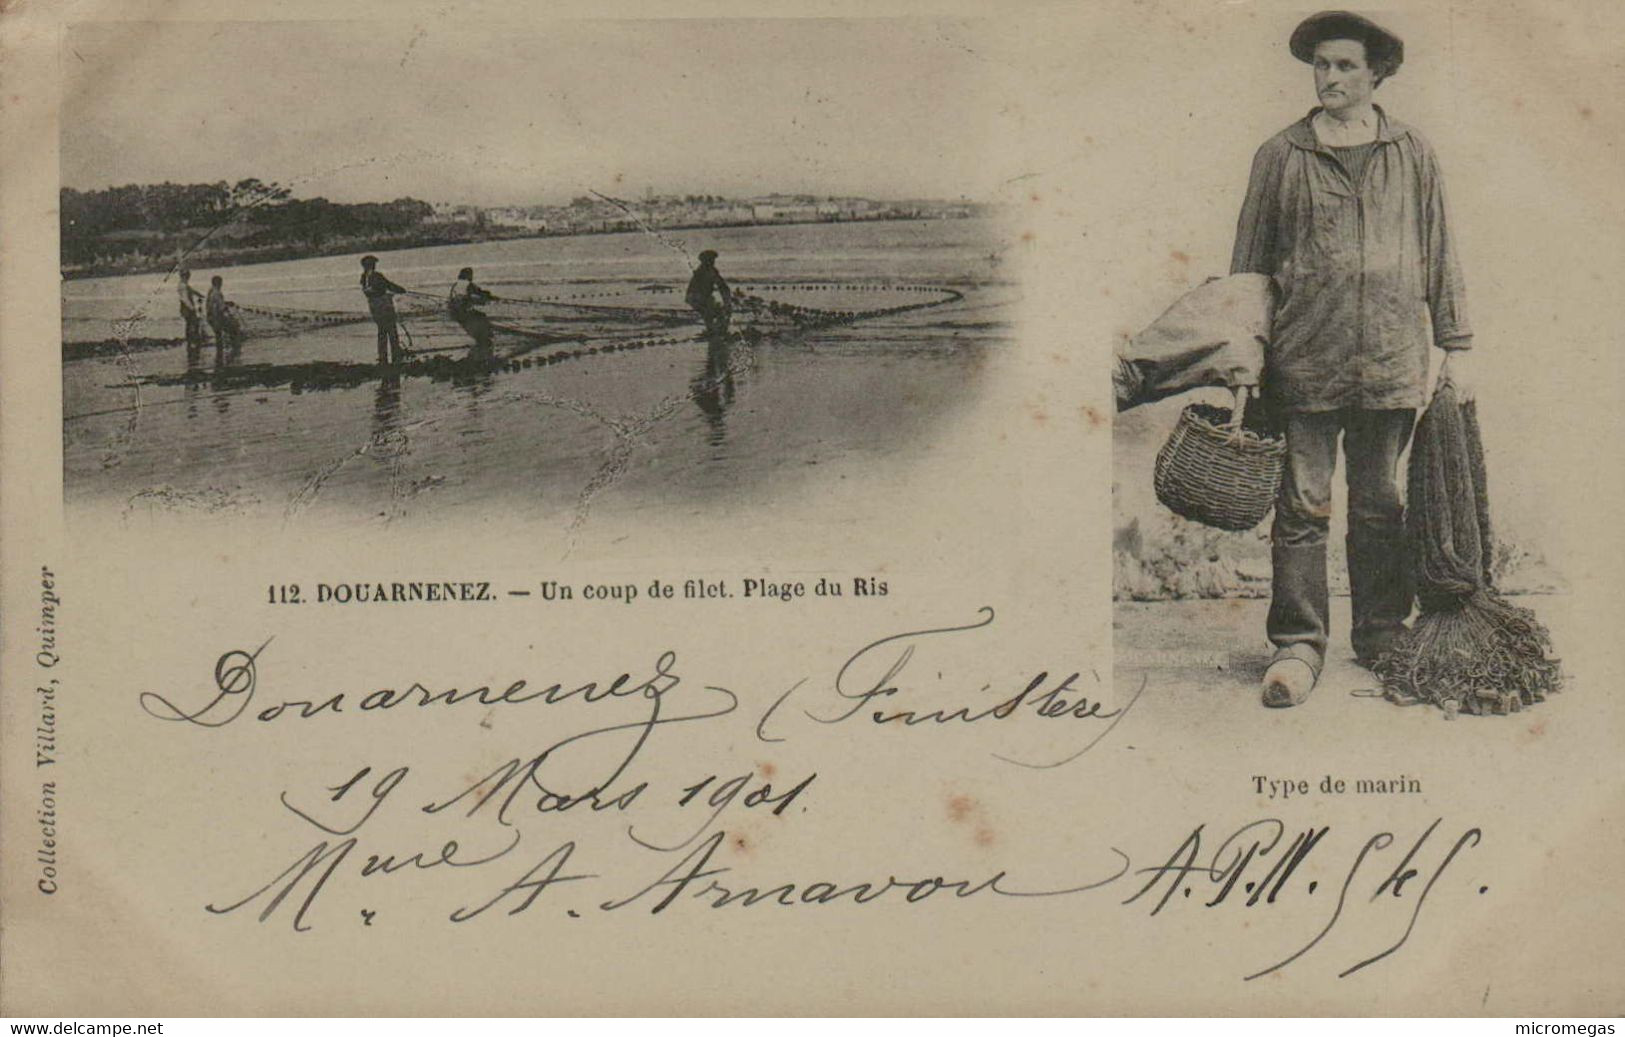 112. DOUARNENEZ. — Un coup de filet. Plage du Ris
Collection Villard, Quimper
Type de marin
Douarnenez (Finistère)
19 Mars 1901.
Mme A. Arnavon A.P.M.
www.delcampe.net
micromegas